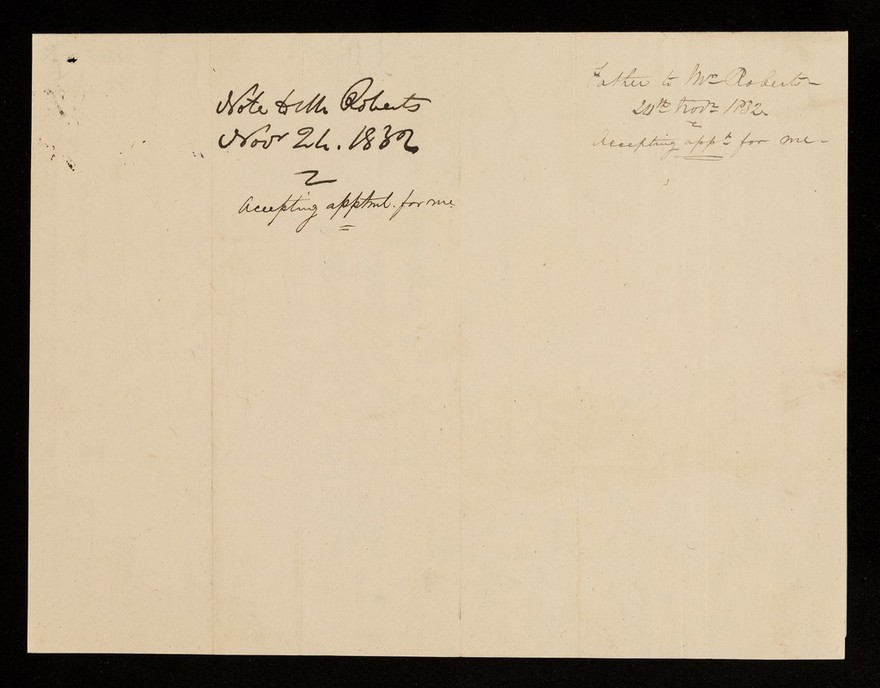 Note to Mr Roberts
Novr 24. 1832
Accepting apptmt. for me.
Father to Mr Roberts
24th Novr 1832
Accepting appt for me